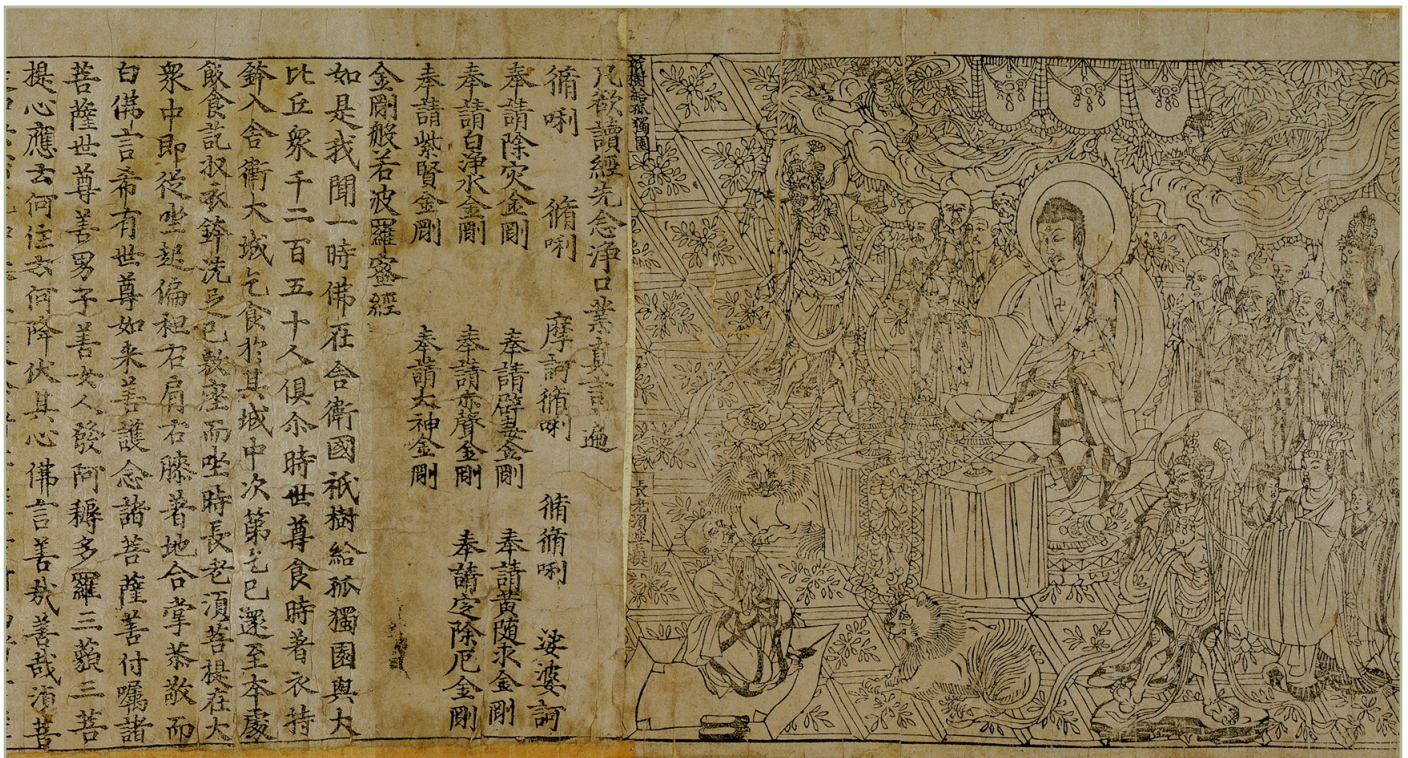 祇樹給孤獨園
長老須菩提
凡欲讀經先念淨口業真言遍
脩唎 脩唎 摩訶脩唎 脩脩唎 娑婆訶
奉請除灾金剛 奉請辟毒金剛 奉請黃随求金剛
奉請白淨水金剛 奉請赤聲金剛 奉請定除厄金剛
奉請紫賢金剛 奉請大神金剛
金剛般若波羅蜜經
如是我聞一時佛在舍衛國祇樹給孤獨園與大
比丘眾千二百五十人俱尒時世尊食時著衣持
鉢入舍衛大城乞食於其城中次第乞已還至本處
飯食訖收衣鉢洗足已敷座而坐時長老湏菩提在大
眾中即從坐起偏袒右肩右膝著地合掌恭敬而
白佛言希有世尊如来善護念諸菩薩善付囑諸
菩薩世尊善男子善女人發阿耨多羅三藐三菩
提心應云何住云何降伏其心佛言善哉善哉湏菩